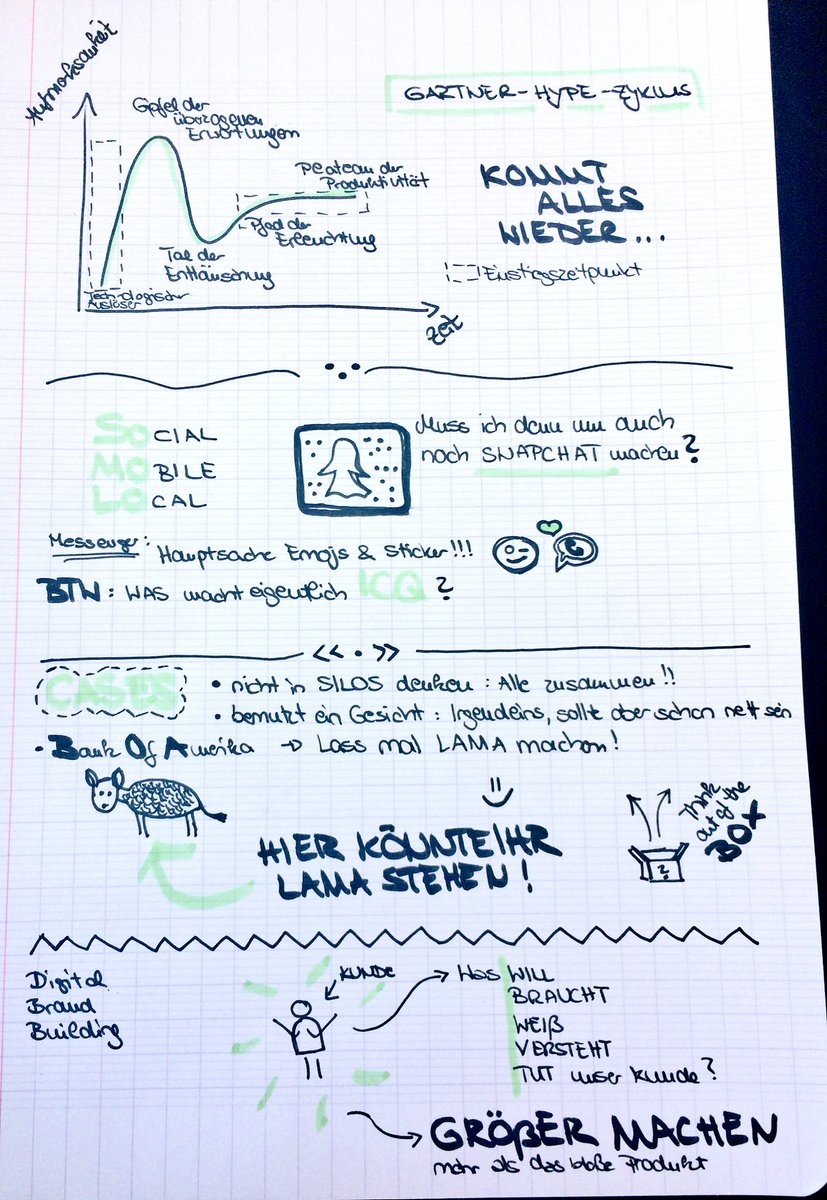 Aufmerksamkeit
GARTNER-HYPE-ZYKLUS
Gipfel der
überzogenen
Erwartungen
Plateau der
Produktivität
KOMMT
ALLES
WIEDER...
Pfad der
Erleuchtung
Tal der
Enttäuschung
Einstiegszeitpunkt
Technologischer
Auslöser
Zeit
SOCIAL
MOBILE
LOCAL
Muss ich denn nun auch
noch SNAPCHAT machen?
Messenger: Hauptsache Emojs & Sticker!!!
BTW: WAS macht eigentlich ICQ?
CASES
• nicht in SILOS denken: Alle zusammen!!
• benutzt ein Gesicht: Irgendeins, sollte aber schon nett sein
• Bank Of Amerika -> Lass mal LAMA machen!
HIER KÖNNTE IHR
LAMA STEHEN!
Think
out of the
BOX
?
Digital
Brand
Building
KUNDE
Was WILL
BRAUCHT
WEIß
VERSTEHT
TUT unser Kunde?
GRÖßER MACHEN
mehr als das bloße Produkt